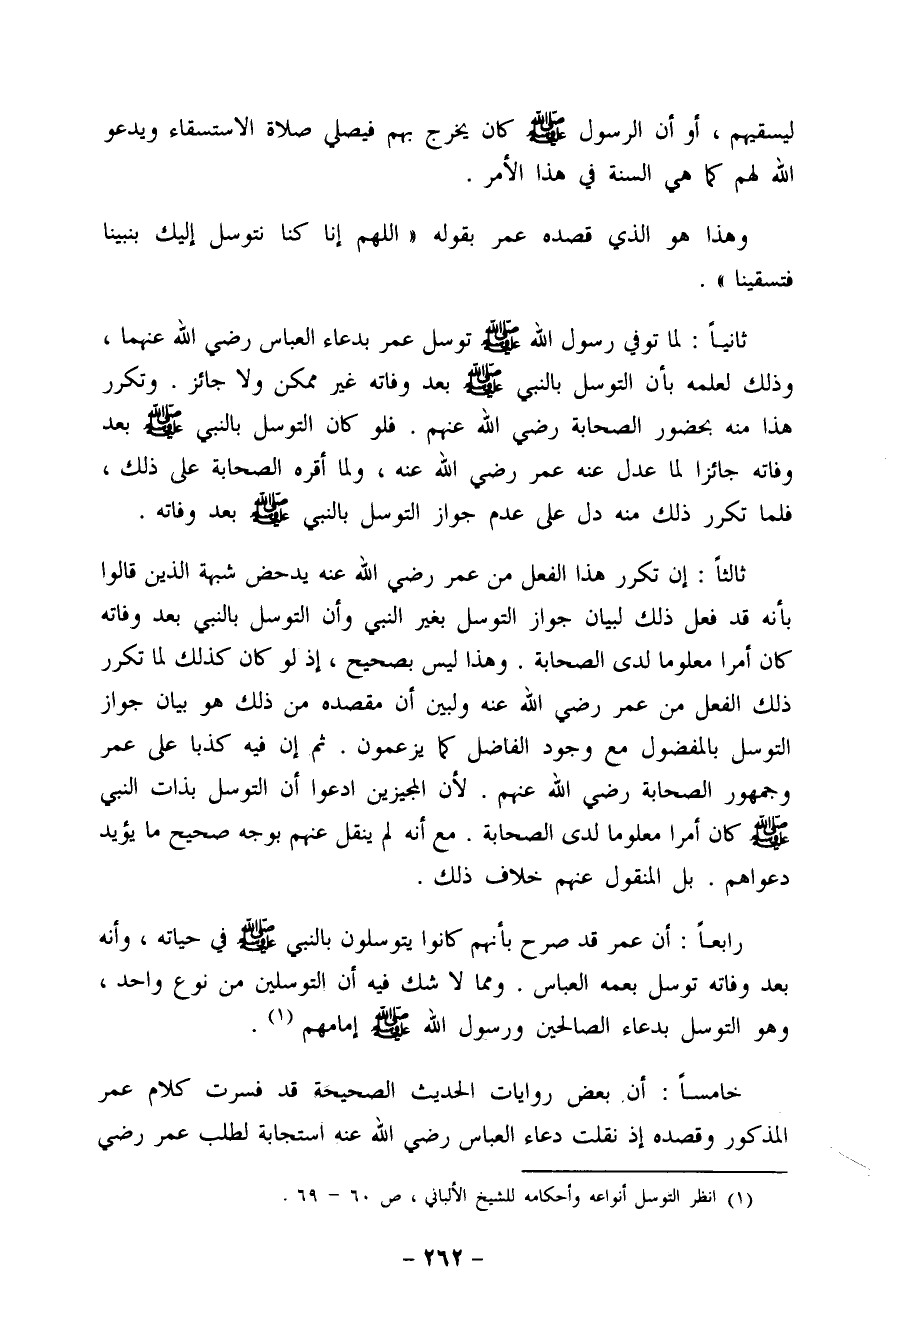 ليسقيهم ، أو أن الرسول ﷺ كان يخرج بهم فيصلي صلاة الاستسقاء ويدعو
الله لهم كما هي السنة في هذا الأمر .
وهذا هو الذي قصده عمر بقوله « اللهم إنا كنا نتوسل إليك بنبينا
فتسقينا » .
ثانيـاً : لما توفي رسول الله ﷺ توسل عمر بدعاء العباس رضي الله عنهما ،
وذلك لعلمه بأن التوسل بالنبي ﷺ بعد وفاته غير ممكن ولا جائز . وتكرر
هذا منه بحضور الصحابة رضي الله عنهم . فلو كان التوسل بالنبي ﷺ بعد
وفاته جائزا لما عدل عنه عمر رضي الله عنه ، ولما أقره الصحابة على ذلك ،
فلما تكرر ذلك منه دل على عدم جواز التوسل بالنبي ﷺ بعد وفاته .
ثالثاً : إن تكرر هذا الفعل من عمر رضي الله عنه يدحض شبهة الذين قالوا
بأنه قد فعل ذلك لبيان جواز التوسل بغير النبي وأن التوسل بالنبي بعد وفاته
كان أمرا معلوما لدى الصحابة . وهذا ليس بصحيح ، إذ لو كان كذلك لما تكرر
ذلك الفعل من عمر رضي الله عنه ولبين أن مقصده من ذلك هو بيان جواز
التوسل بالمفضول مع وجود الفاضل كما يزعمون . ثم إن فيه كذبا على عمر
وجمهور الصحابة رضي الله عنهم . لأن المجيزين ادعوا أن التوسل بذات النبي
ﷺ كان أمرا معلوما لدى الصحابة . مع أنه لم ينقل عنهم بوجه صحيح ما يؤيد
دعواهم . بل المنقول عنهم خلاف ذلك .
رابعـاً : أن عمر قد صرح بأنهم كانوا يتوسلون بالنبي ﷺ في حياته ، وأنه
بعد وفاته توسل بعمه العباس . ومما لا شك فيه أن التوسلين من نوع واحد ،
وهو التوسل بدعاء الصالحين ورسول الله ﷺ إمامهم (١) .
خامسـاً : أن بعض روايات الحديث الصحيحة قد فسرت كلام عمر
المذكور وقصده إذ نقلت دعاء العباس رضي الله عنه استجابة لطلب عمر رضي
(١) انظر التوسل أنواعه وأحكامه للشيخ الألباني ، ص ٦٠ – ٦٩ .
– ٢٦٢ –